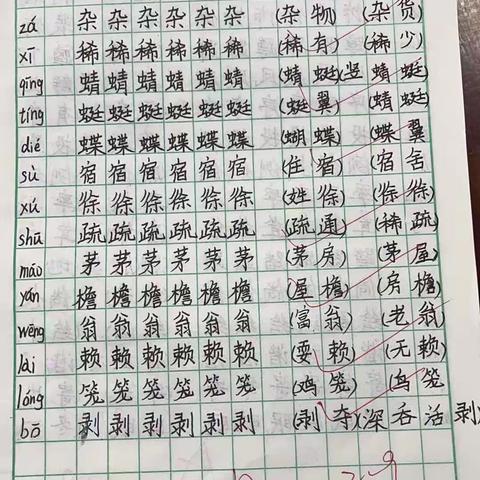 zá 杂 杂 杂 杂 杂 杂 (杂 物) (杂 货)
xī 稀 稀 稀 稀 稀 稀 (稀 有) (稀 少)
qīng 蜻 蜻 蜻 蜻 蜻 蜻 (蜻 蜓) (竖 蜻 蜓)
tíng 蜓 蜓 蜓 蜓 蜓 蜓 (蜓 翼) (蜻 蜓)
dié 蝶 蝶 蝶 蝶 蝶 蝶 (蝴 蝶) (蝶 翼)
sù 宿 宿 宿 宿 宿 宿 (住 宿) (宿 舍)
xú 徐 徐 徐 徐 徐 徐 (姓 徐) (徐 徐)
shū 疏 疏 疏 疏 疏 疏 (疏 通) (稀 疏)
máo 茅 茅 茅 茅 茅 茅 (茅 房) (茅 屋)
yán 檐 檐 檐 檐 檐 檐 (屋 檐) (房 檐)
wēng 翁 翁 翁 翁 翁 翁 (富 翁) (老 翁)
lài 赖 赖 赖 赖 赖 赖 (耍 赖) (无 赖)
lóng 笼 笼 笼 笼 笼 笼 (鸡 笼) (鸟 笼)
bō 剥 剥 剥 剥 剥 剥 (剥 夺) (深 吞 活 剥)